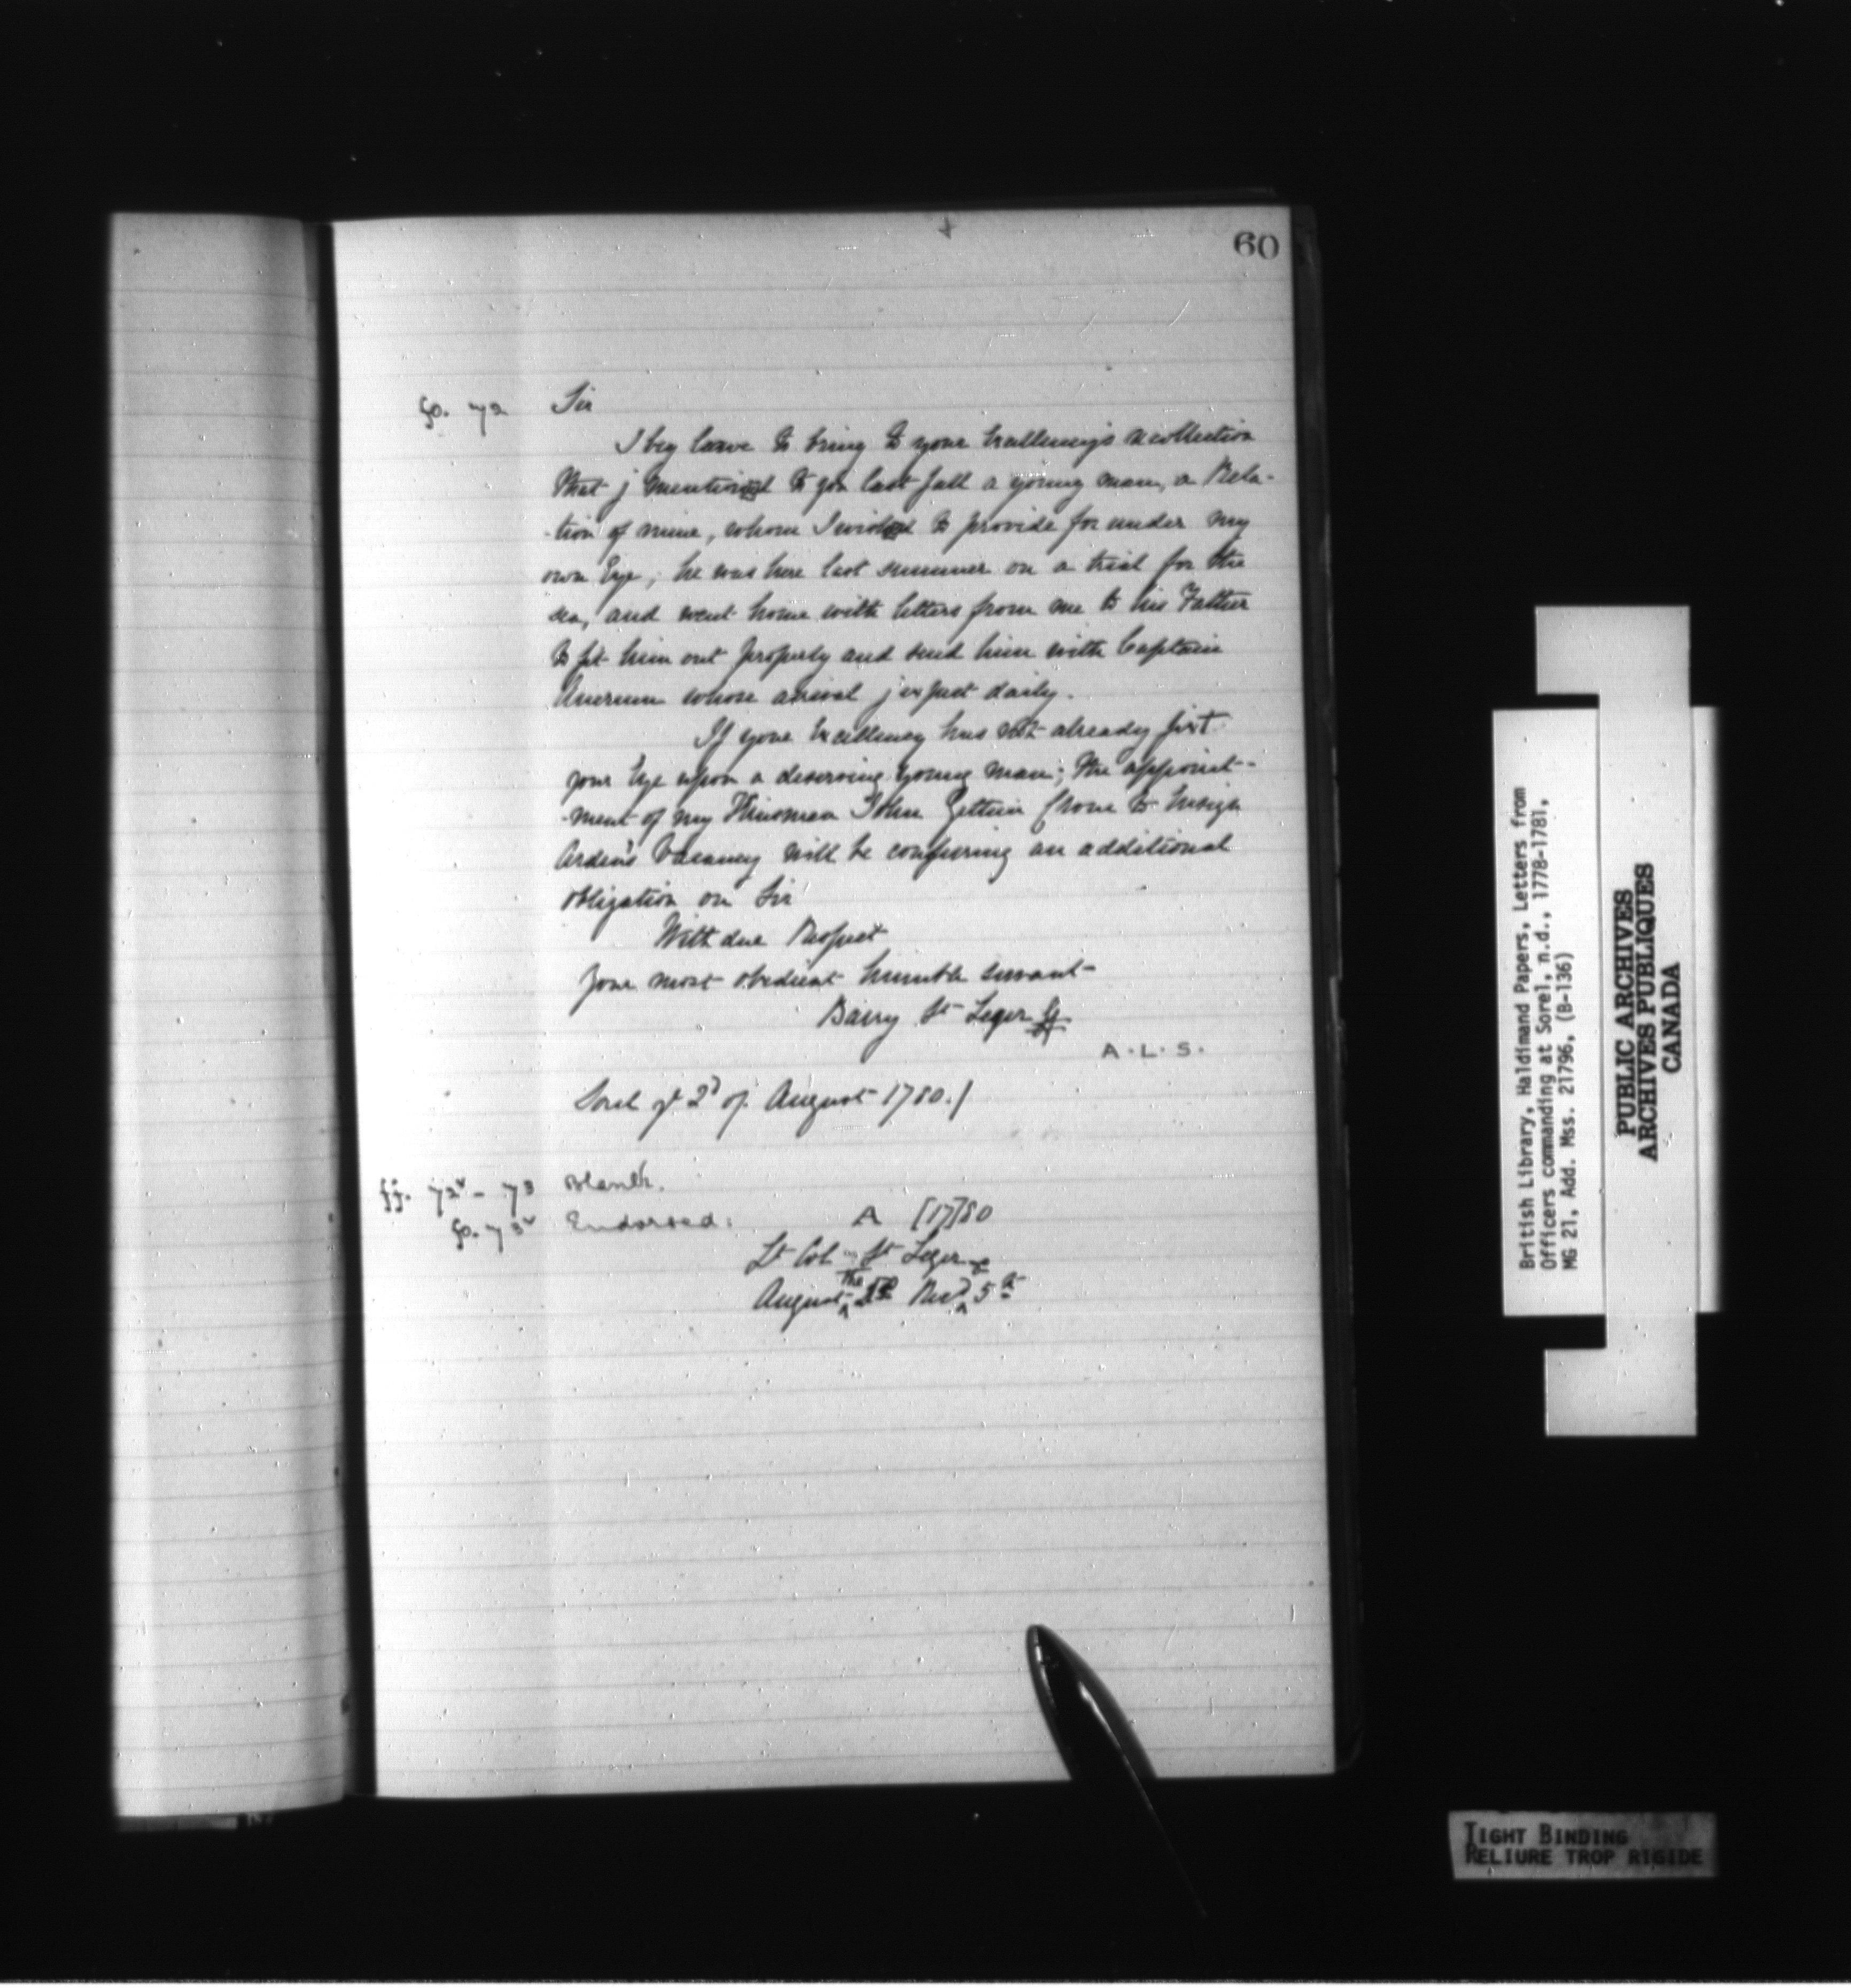 60
fo. 72 Sir
I beg leave to bring to your Excellency's recollection
that j mentioned to you last fall a young man, a Rela-
-tion of mine, whom I wished to provide for under my
own Eye; he was here last summer on a trial for the
sea, and went home with letters from me to his Father
to fit him out properly and send him with Captain
whose arrival j expect daily.
If your Excellency has not already fixt
your Eye upon a deserving young man; the appoint-
-ment of my Kinsman John to Ensign
Arden's Vacancy will be conferring an additional
obligation on Sir
With due Respect
Your most obedient humble servant
Barry St Leger
A.L.S.
Sorel ye 2d of August 1780./
ff. 72v - 73 Blank.
fo. 73v Endorsed: A [17]80
Lt Col St Leger
August the Recd 5th
British Library, Haldimand Papers, Letters from
Officers commanding at Sorel, n.d., 1778-1781,
MG 21, Add. Mss. 21796, (B-136)
PUBLIC ARCHIVES
ARCHIVES PUBLIQUES
CANADA
TIGHT BINDING
RELIURE TROP RIGIDE